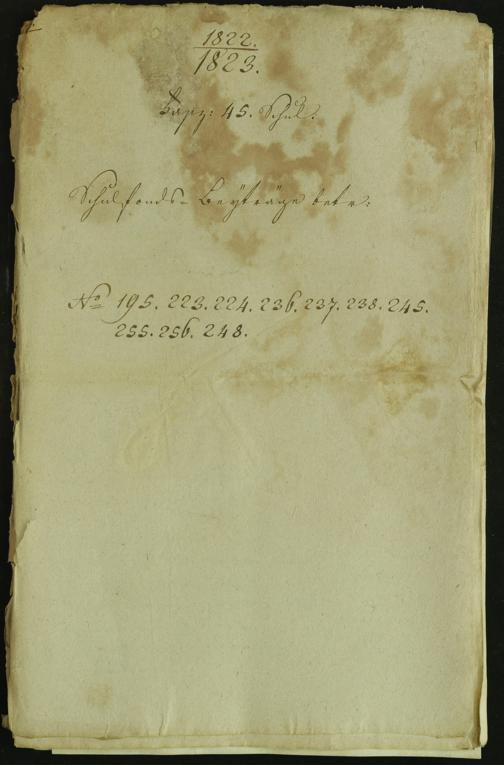 1822.
1823.
45. Schul.
Schulfonds-Beyträge betr:
No 195. 223. 224. 236. 237. 238. 245.
255. 256. 248.